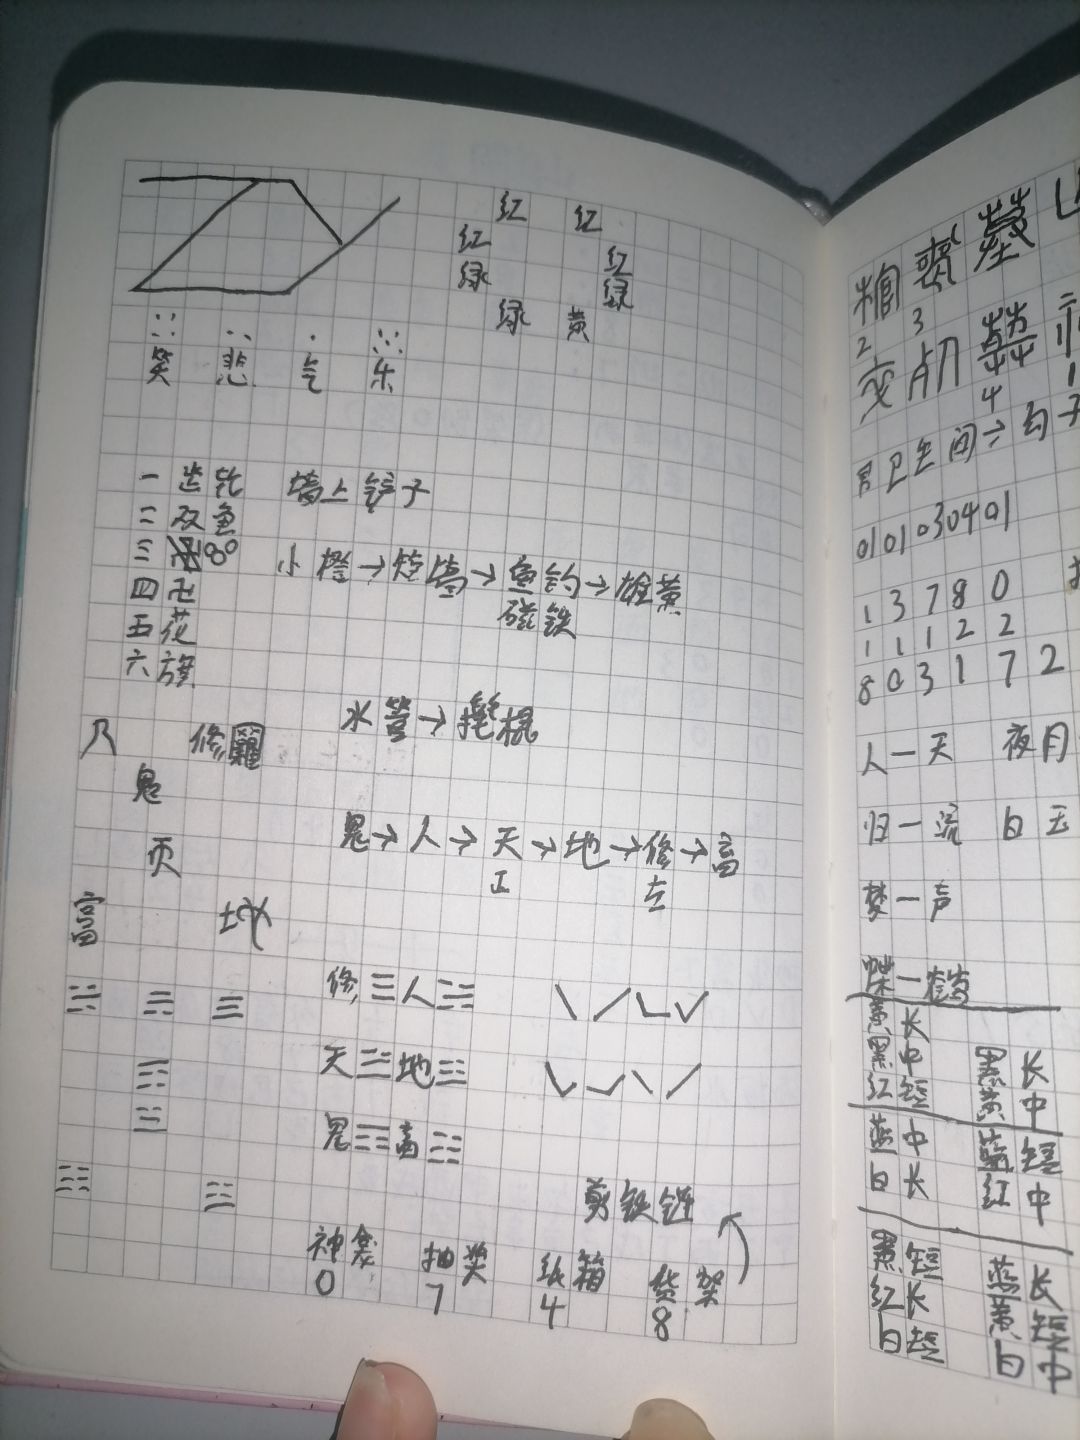 红 红
红 红
绿 绿
绿 黄
笑 悲 气 乐
一 齿轮 墙上铲子
二 双鱼
三 80
小橙→矮凳→鱼钓→雄黄
磁铁
四 卍
五 花
六 旗
水管→撬棍
修
鬼
页
鬼→人→天→地→修→富
正 左
富 地
修 人
天 地
鬼 富
剪铁链
神龛 抽奖 纸箱 货架
0 7 4 8
棺 墓
2 3
变 切
4 1
男卫生间→勾子
0101030401
1 3 7 8 0
1 1 1 2 2
8 0 3 1 7 2
人一天 夜月
归一流 白玉
梦一声
蝶一
黄长
黑中 黑长
红短 黄中
蓝中 蓝短
白长 红中
黑短 蓝长
红长 黄短
白短 白中